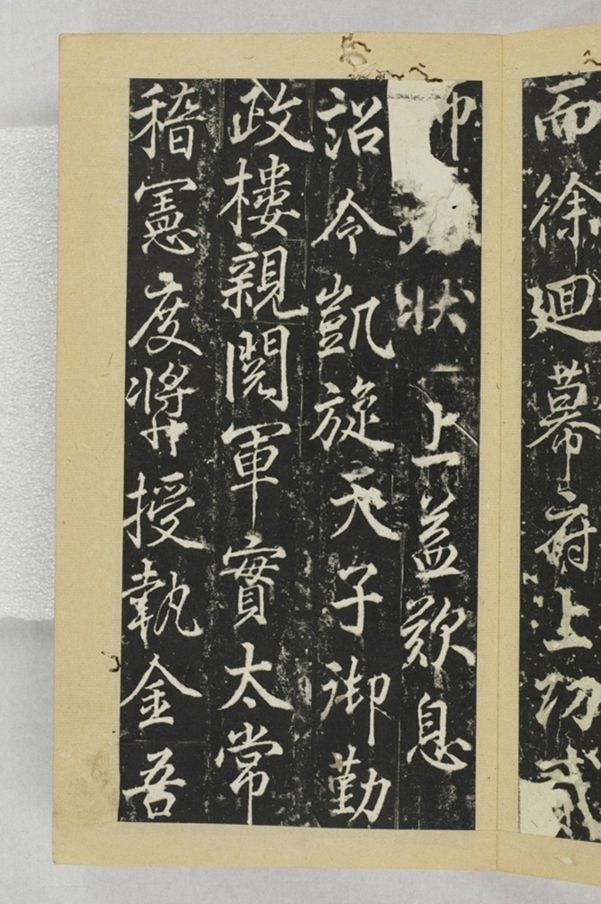 而徐廻幕府上功貳
狀上益歎息
詔令凱旋天子御勤
政樓親閱軍實太常
稽憲度將授執金吾